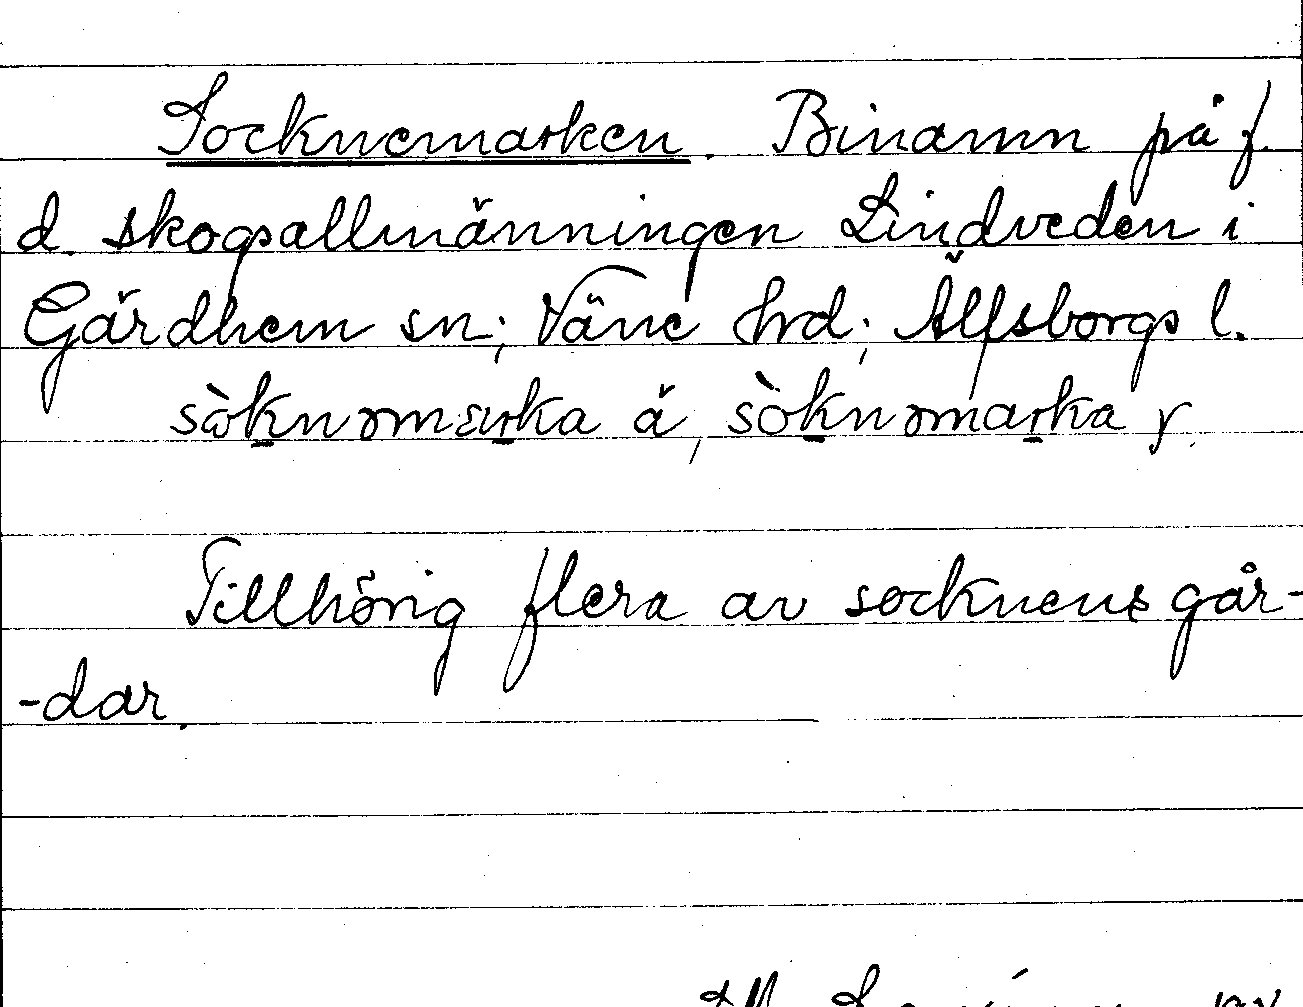 Socknemarken. Binamn på f.
d. skogsallmänningen Lindveden i
Gärdhem sn; Väne hrd; Älfsborgs l.
sòknəmarka ä, sòknəmarka y.
Tillhörig flera av socknens går-
-dar.